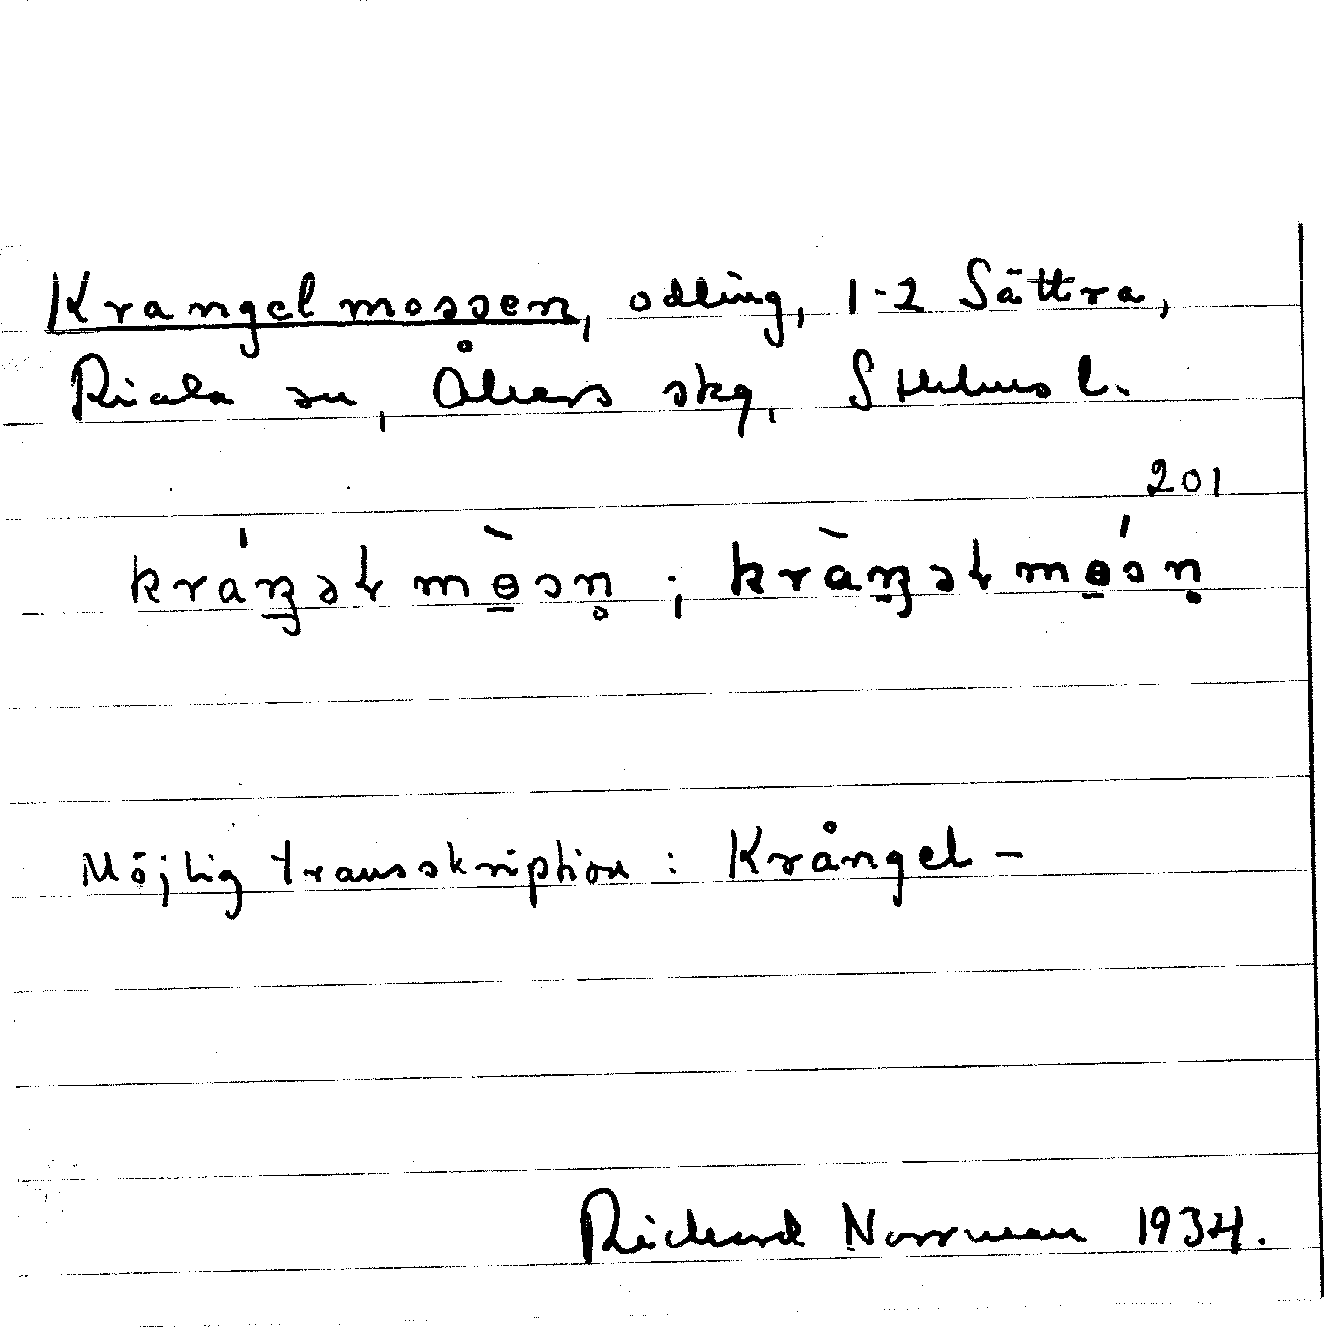 Krangelmossen, odling, 1-2 Sättra,
Riala sn, Åkers skg, Sthlms l.
201
kráŋəɫ mɵ̀sn̥ ; kràŋəɫ mɵ́sn̥
Möjlig transskription : Krångel -
Richard Norrman 1934.